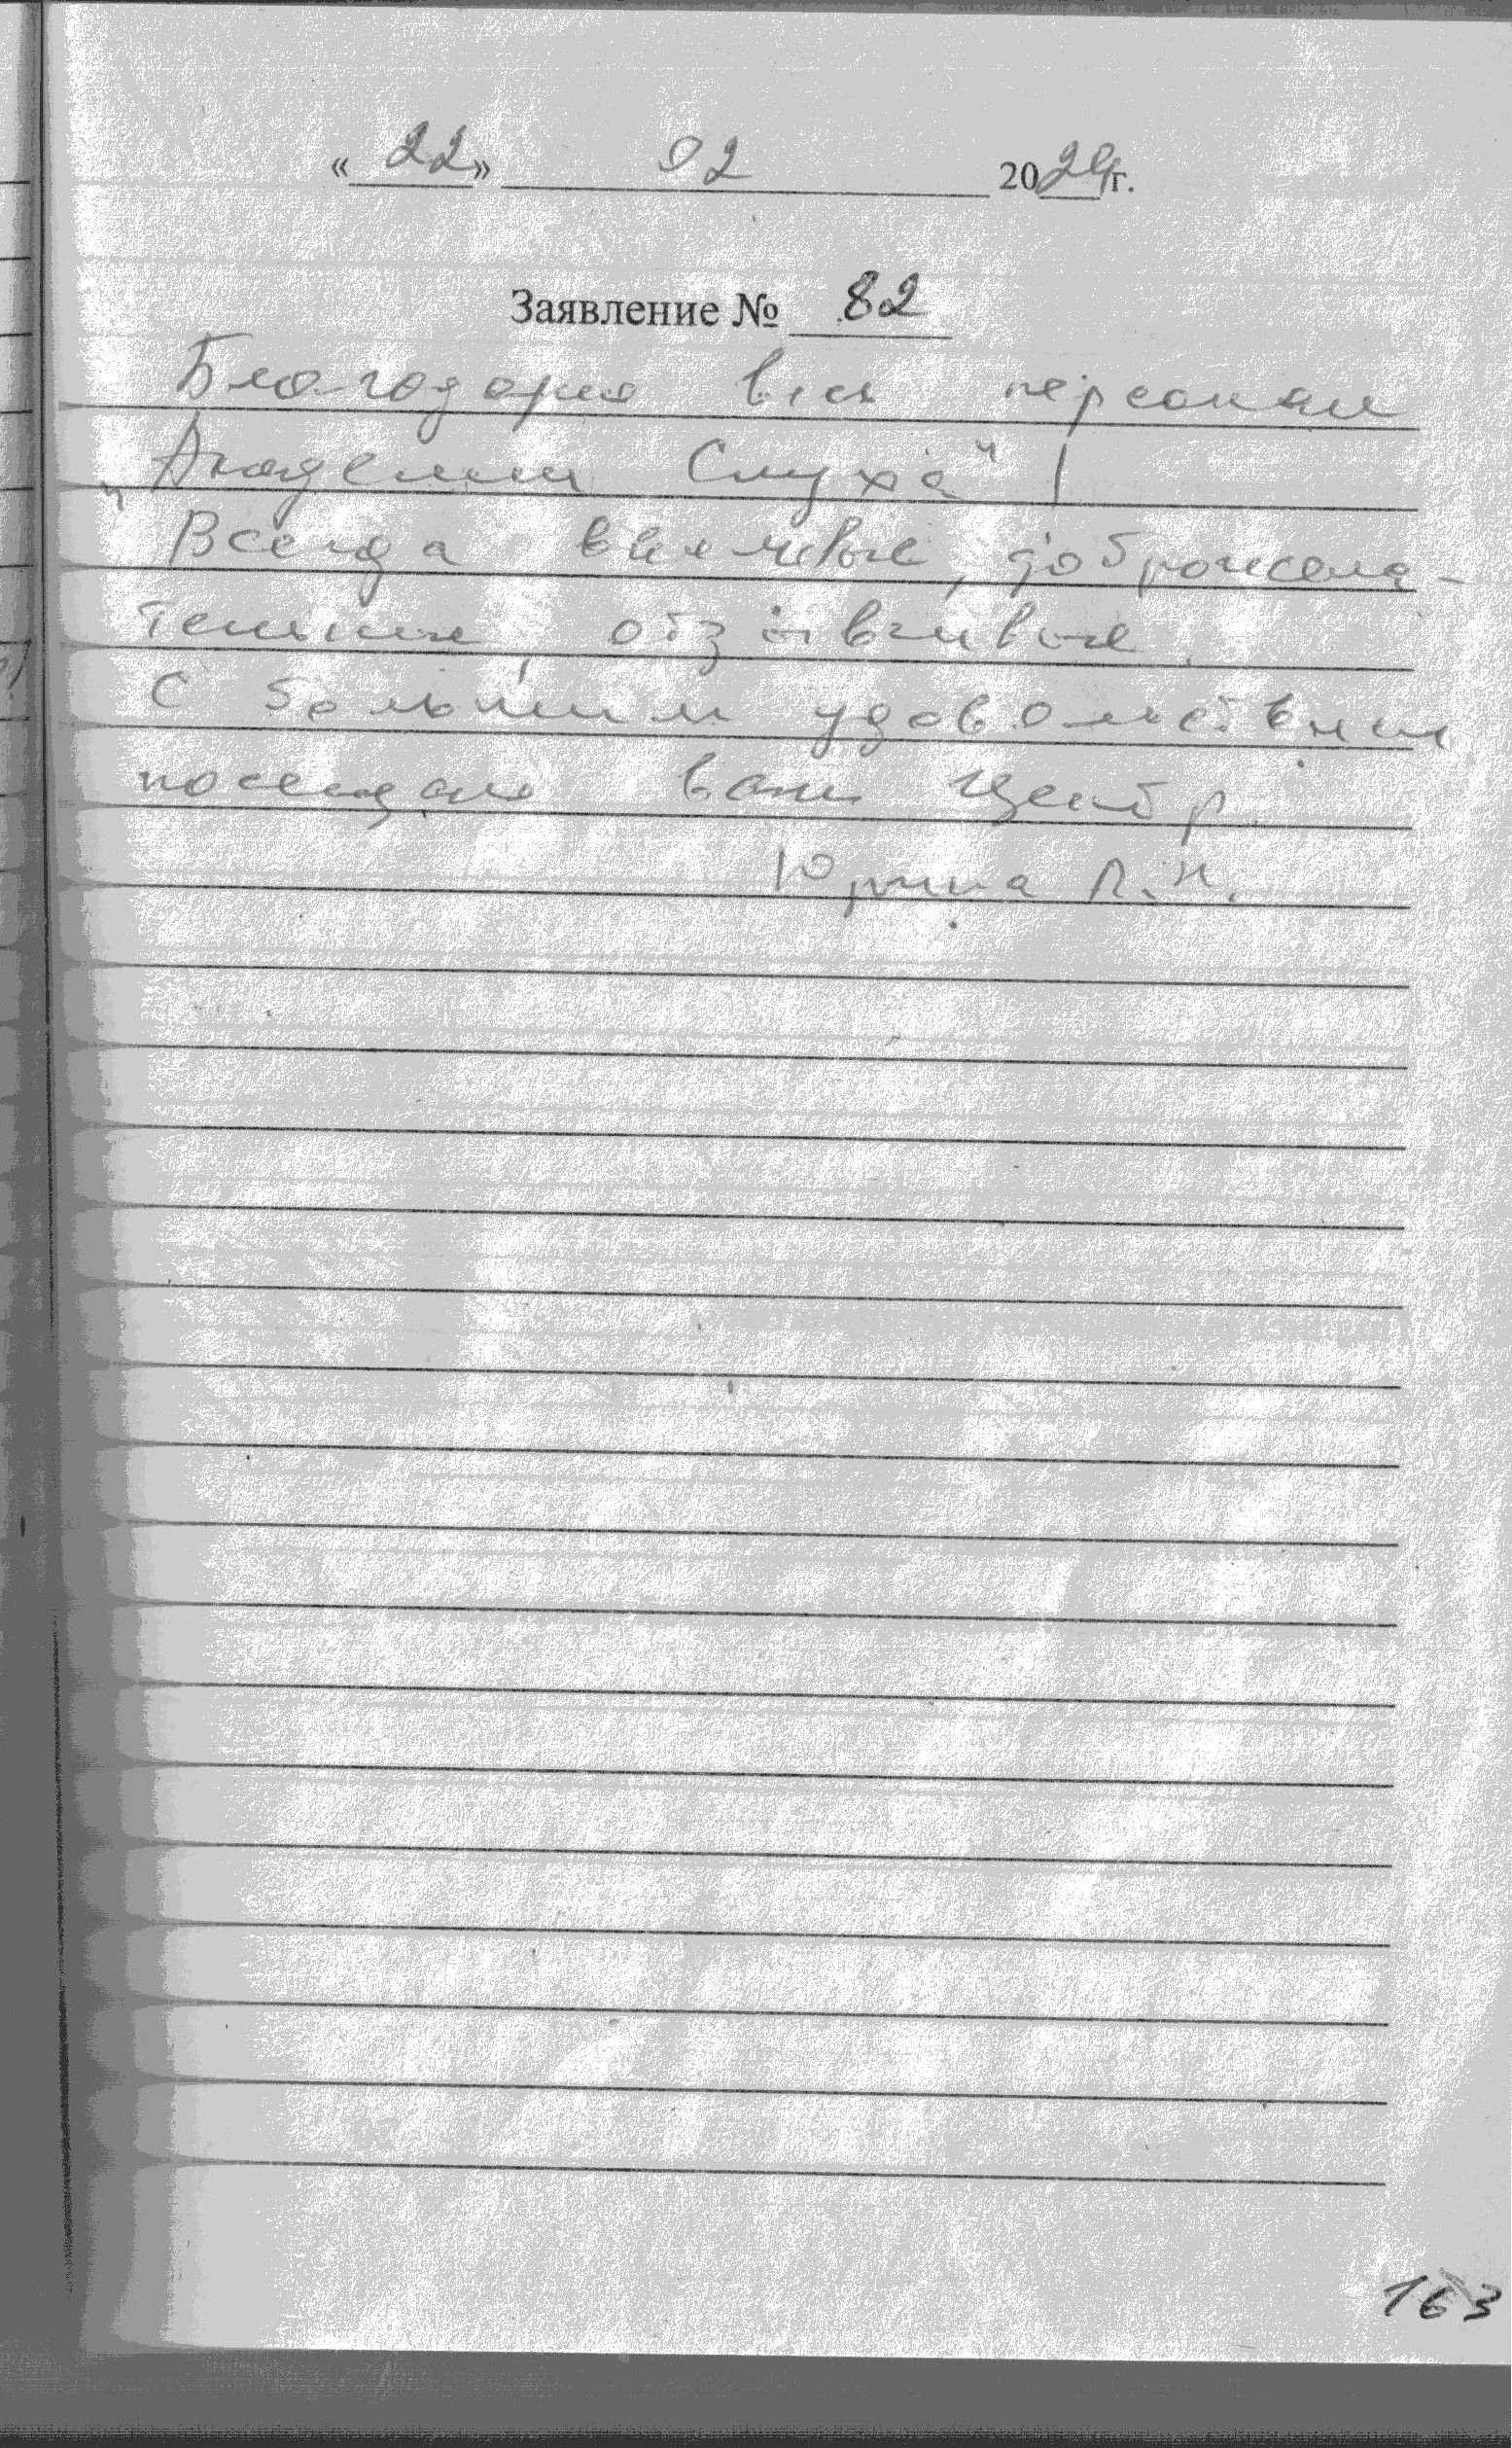 « 22 » 02 2024г.
Заявление № 82
Благодарю весь персонал
„Академии Слуха“!
Всегда вежливые, доброжела-
тельные, отзывчивые.
С большим удовольствием
посещаю ваш центр.
Юрина Л.Н.
163